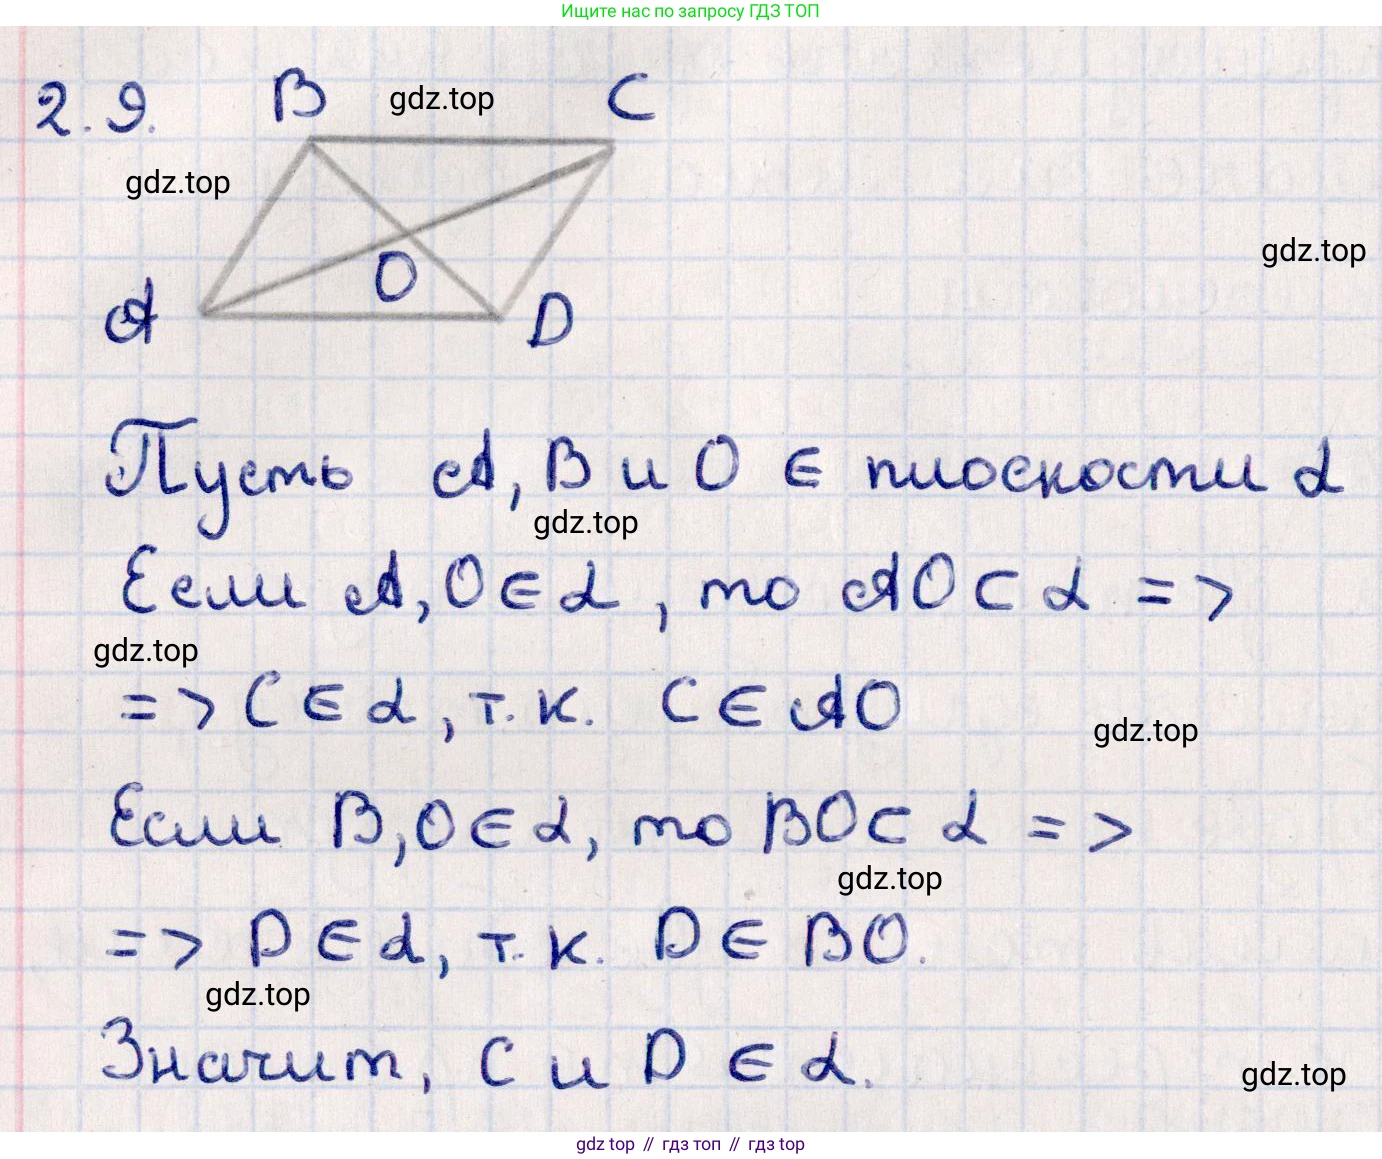 Ищите нас по запросу ГДЗ ТОП
2.9. B gdz.top C
gdz.top
gdz.top
O
A D
Пусть A, B и O ∈ плоскости α
gdz.top
Если A, O ∈ α, то AO ⊂ α =>
gdz.top
=> C ∈ α, т.к. C ∈ AO
gdz.top
Если B, O ∈ α, то BO ⊂ α =>
gdz.top
=> D ∈ α, т.к. D ∈ BO.
gdz.top
Значит, C и D ∈ α.
gdz.top
gdz top // гдз топ // gdz top